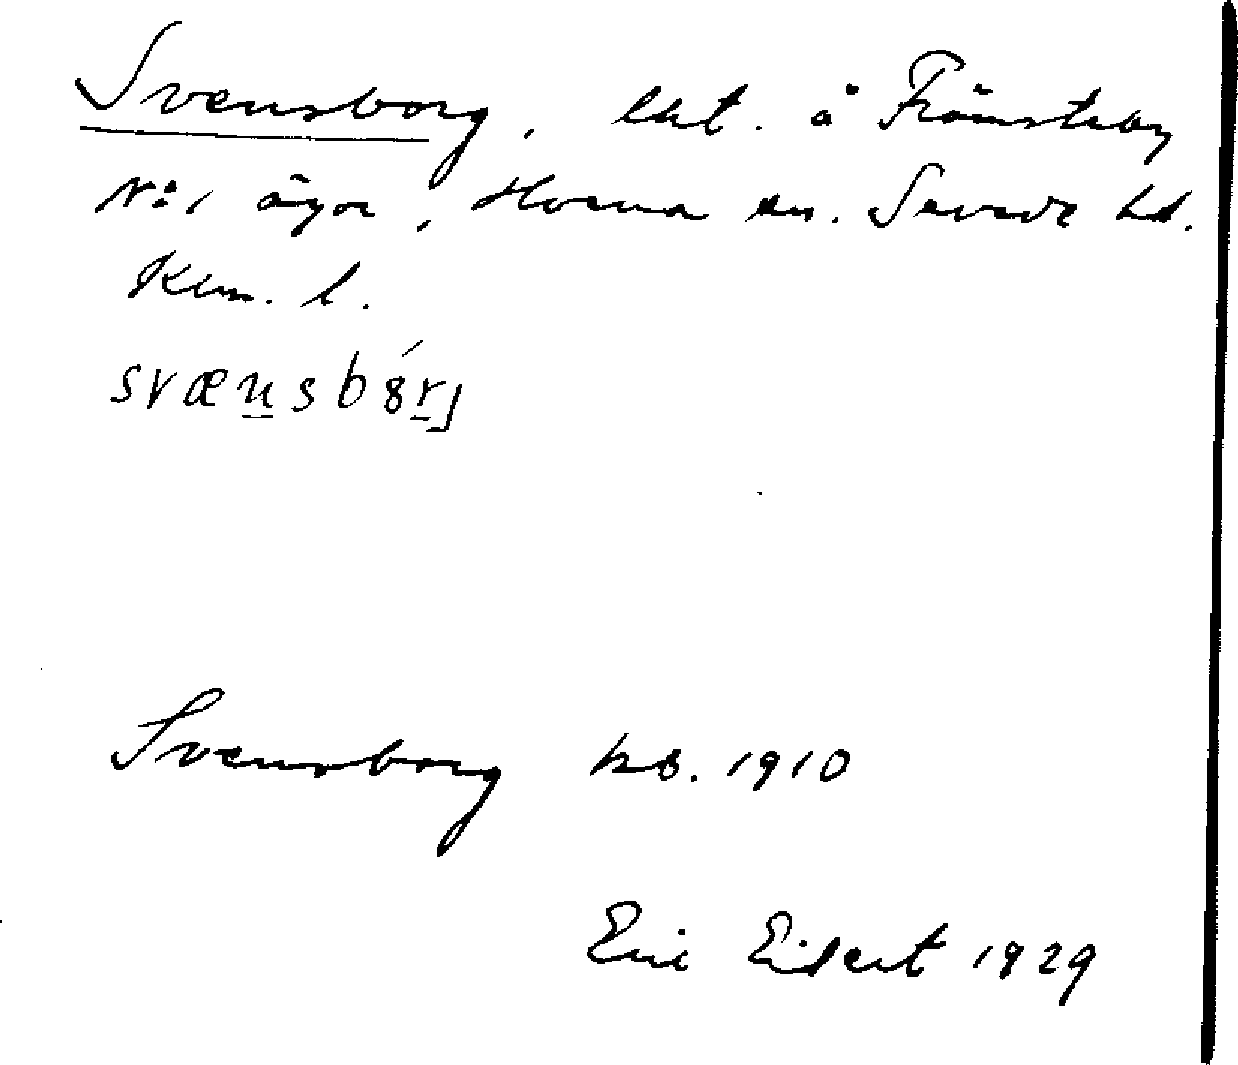 Svensborg, lht. å Främsteby
N:o 1 ägor, Horna sn. Sevede hd.
Klm. l.
svænsbórj
Svensborg kb. 1910
Eric Eilert 1929